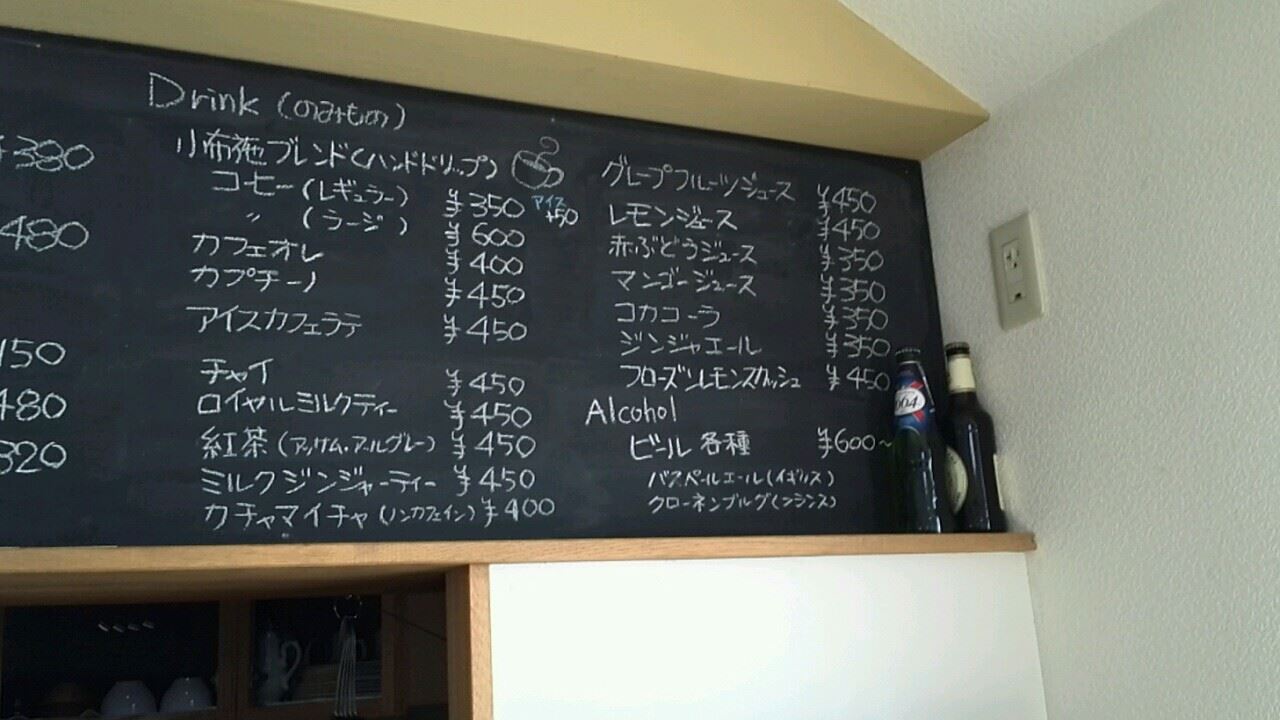 ¥380
480
150
480
320
Drink (のみもの)
小布施ブレンド(ハンドドリップ)
コーヒー(レギュラー) ¥350 アイス+50
〃 (ラージ) ¥600
カフェオレ ¥400
カプチーノ ¥450
アイスカフェラテ ¥450
チャイ ¥450
ロイヤルミルクティー ¥450
紅茶(アッサム・アールグレー) ¥450
ミルクジンジャーティー ¥450
カチャマイチャ(ノンカフェイン) ¥400
グレープフルーツジュース ¥450
レモンジュース ¥450
赤ぶどうジュース ¥350
マンゴージュース ¥350
コカコーラ ¥350
ジンジャエール ¥350
フローズンレモンスカッシュ ¥450
Alcohol
ビール各種 ¥600~
バスペールエール(イギリス)
クローネンブルグ(フランス)